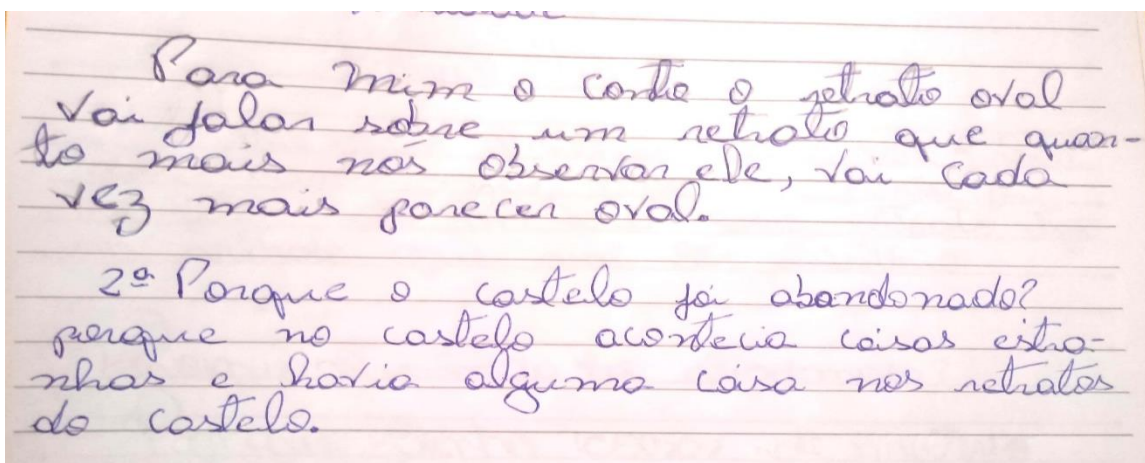 Para mim o conto o retrato oval
Vai falar sobre um retrato que quan-
to mais nós observar ele, vai cada
vez mais parecer oval.
2ª Porque o castelo foi abandonado?
porque no castelo acontecia coisas estra-
nhas e havia alguma coisa nos retratos
do castelo.